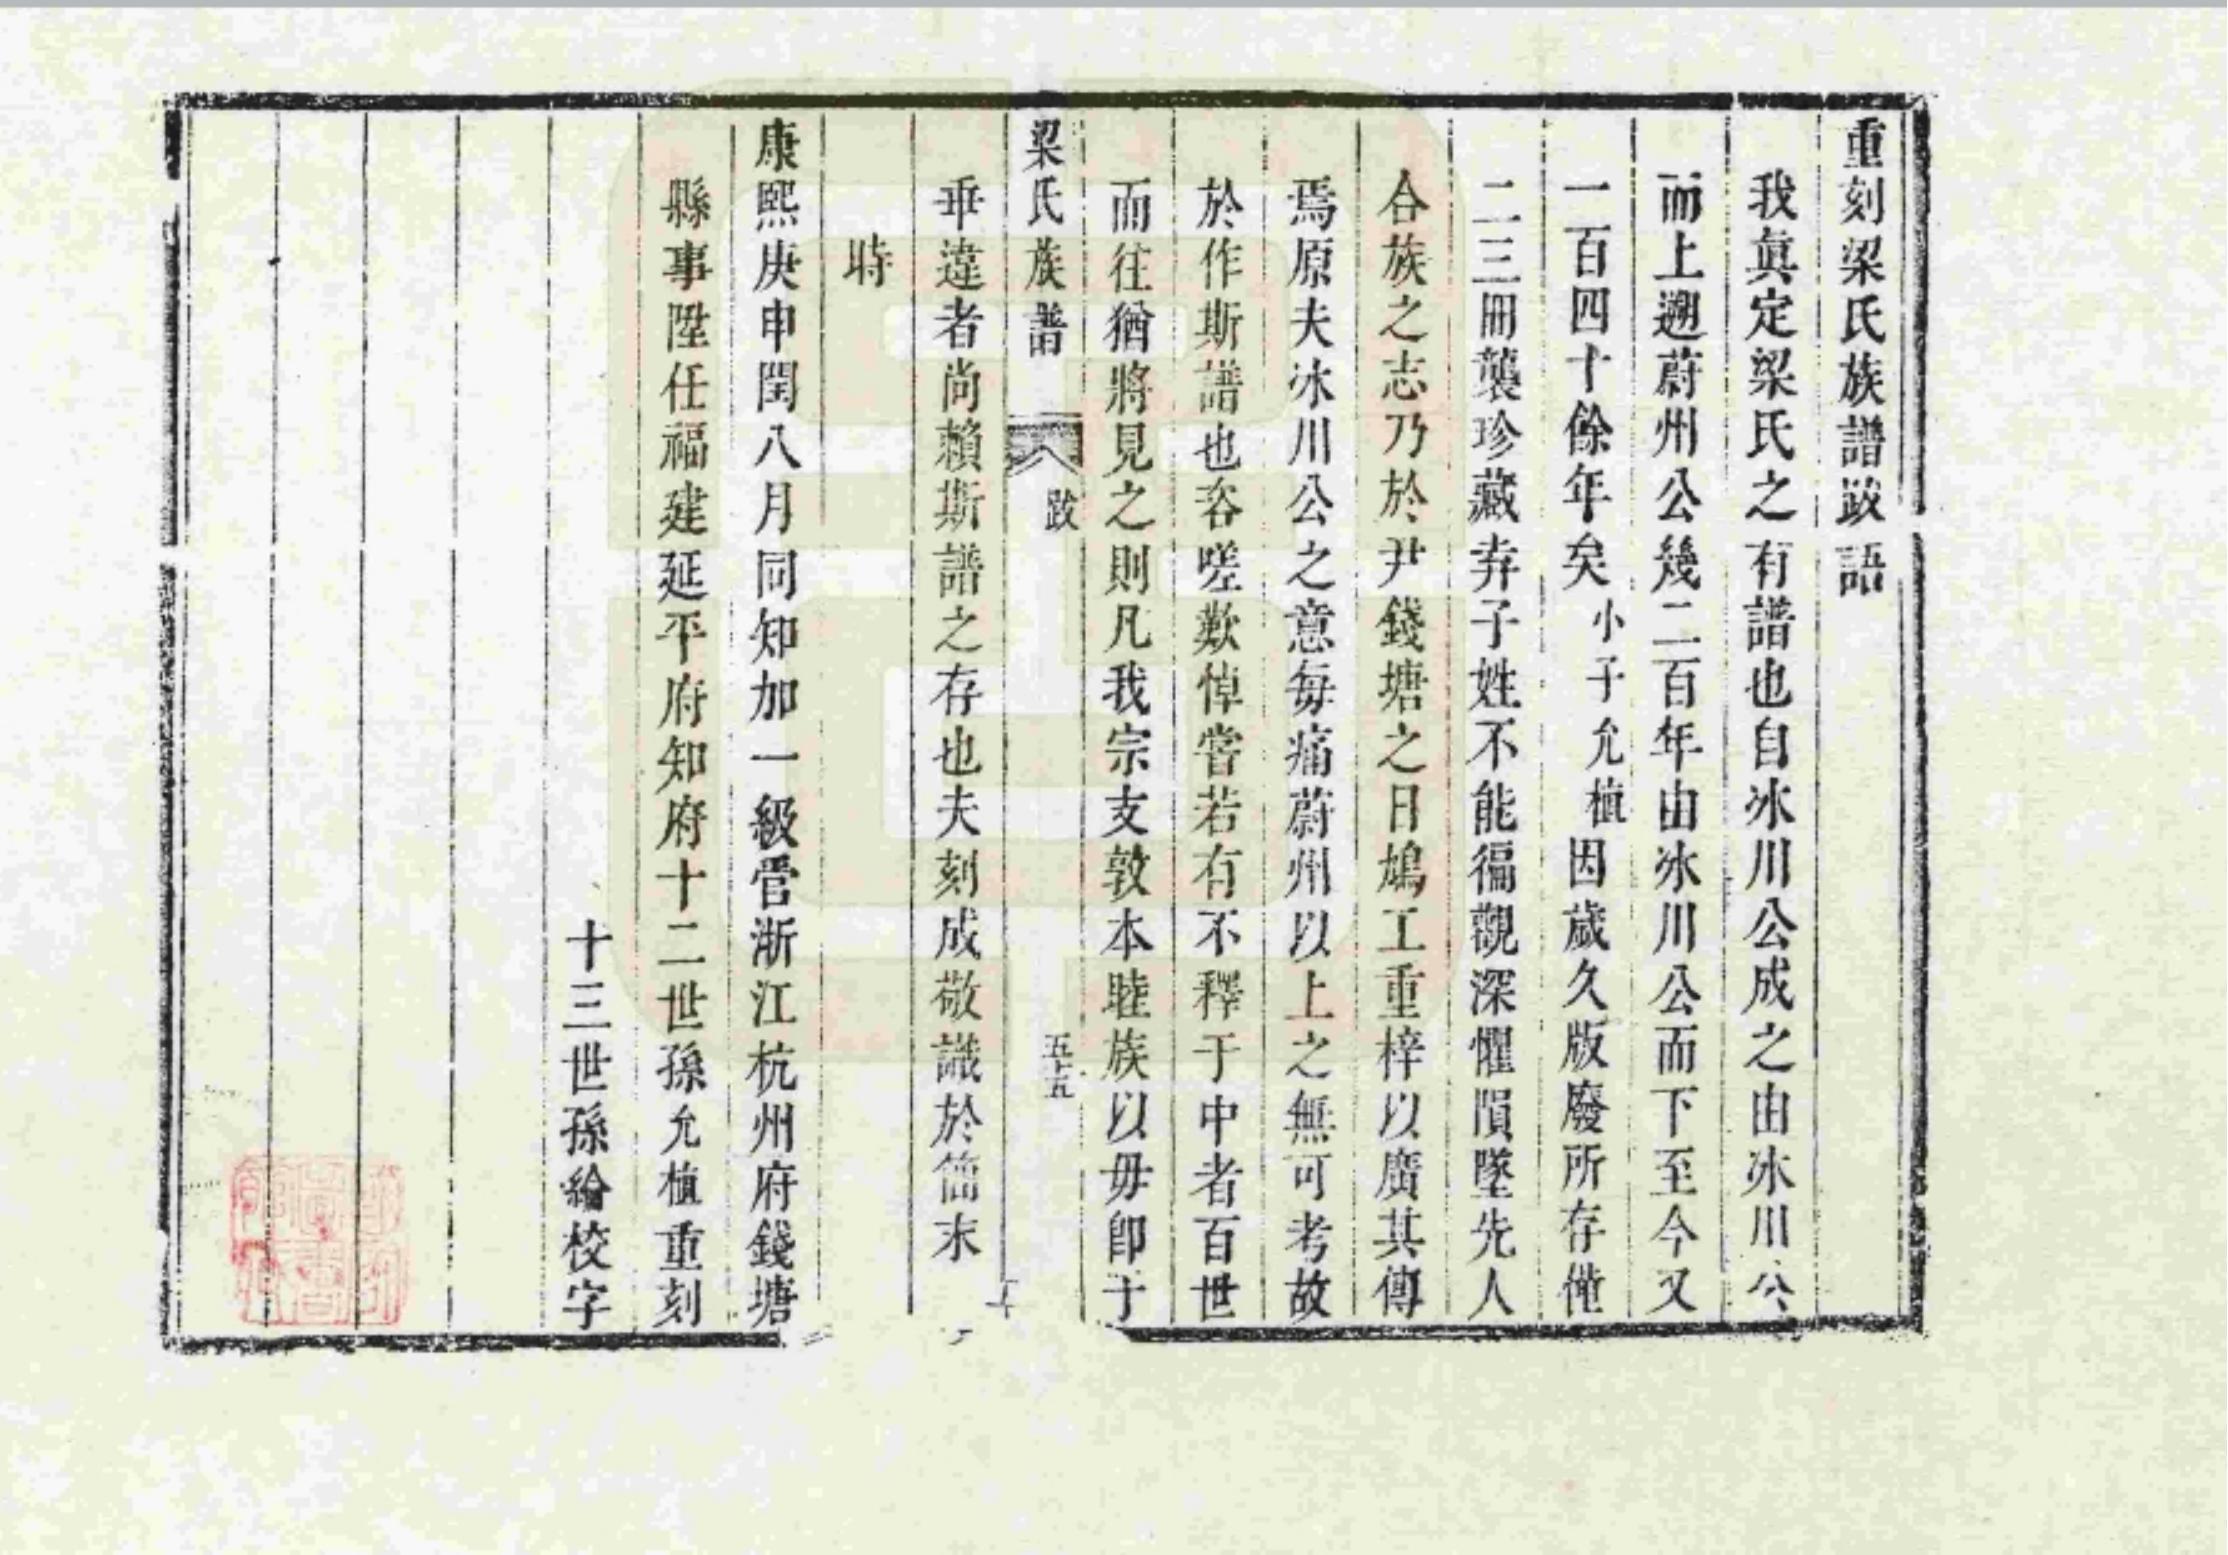 重刻梁氏族譜跋語
我眞定梁氏之有譜也自氷川公成之由氷川公
而上遡蔚州公幾二百年由氷川公而下至今又
一百四十餘年矣小子允植因歲久版廢所存僅
二三冊襲珍藏弆子姓不能徧觀深懼隕墜先人
合族之志乃於尹錢塘之日鳩工重梓以廣其傳
焉原夫氷川公之意每痛蔚州以上之無可考故
於作斯譜也咨嗟歎悼嘗若有不釋于中者百世
而往猶將見之則凡我宗支敦本睦族以毋卽于
梁氏族譜 跋 五十五
乖違者尚賴斯譜之存也夫刻成敬識於簡末
時
康熙庚申閏八月同知加一級管浙江杭州府錢塘
縣事陞任福建延平府知府十二世孫允植重刻
十三世孫繪校字